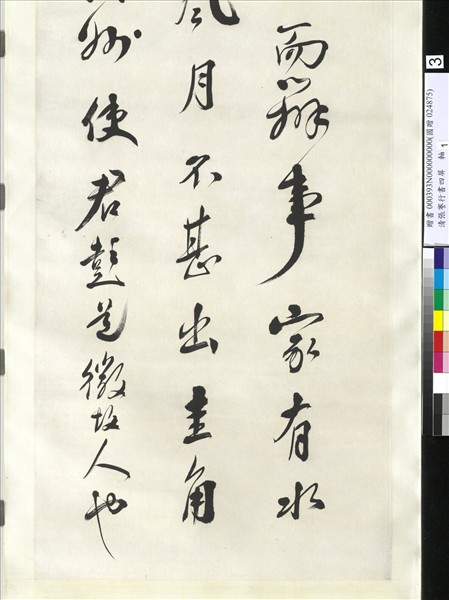 而辦事家有水
風月不甚出圭角
州使君彭道微故人也
3
贈書 000393N000000000(國贈 024875)
清張謇行書四屏 軸 1